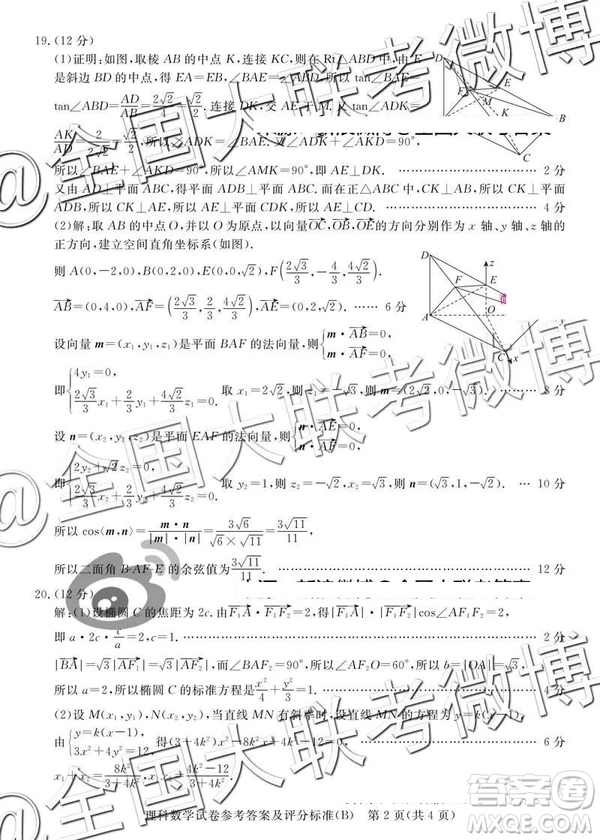 19.(12 分)
(1)证明:如图,取棱 AB 的中点 K,连接 KC,则在 Rt△ABD 中,由 E
是斜边 BD 的中点,得 EA=EB,∠BAE=∠ABD.所以 tan∠BAE=
tan∠ABD=AD/AB=2√2/4=√2/2. 连接 DK,交 AE 于 M,又 tan∠ADK=
AK/AD=2/(2√2)=√2/2,所以∠ADK=∠BAE,∠ADK+∠AKD=90°,
所以∠BAE+∠AKD=90°,所以∠AMK=90°,即 AE⊥DK. 2 分
又由 AD⊥平面 ABC,得平面 ADB⊥平面 ABC.而在正△ABC 中,CK⊥AB,所以 CK⊥平面
ADB,所以 CK⊥AE,所以 AE⊥平面 CKD,所以 AE⊥CD. 4 分
(2)解:取 AB 的中点 O,并以 O 为原点,以向量OC,OB,OE的方向分别作为 x 轴、y 轴、z 轴的
正方向,建立空间直角坐标系(如图).
则 A(0,-2,0),B(0,2,0),E(0,0,√2),F(2√3/3,-4/3,4√2/3).
AB=(0,4,0),AF=(2√3/3,2/3,4√2/3),AE=(0,2,√2). …… 6 分
设向量 m=(x₁,y₁,z₁)是平面 BAF 的法向量,则{m·AB=0, m·AF=0,
即{4y₁=0, 2√3/3x₁+2/3y₁+4√2/3z₁=0. 取 x₁=2√2,则 z₁=-√3,则 8 分
设 n=(x₂,y₂,z₂)是平面 EAF 的法向量,则{n·AE=0, n·AF=0,
即{2y₂+√2z₂=0, 2√3/3x₂+2/3y₂+4√2/3z₂=0. 取 y₂=1,则 z₂=-√2,x₂=√3,则 n=(√3,1,-√2). … 10 分
所以 cos⟨m,n⟩=m·n/|m||n|=3√6/(√6×√11)=3√11/11,
所以二面角 B-AF-E 的余弦值为3√11/11. 12 分
20.(12 分)
解:(1)设椭圆 C 的焦距为 2c. 由F₁A·F₁F₂=2,得|F₁A|·|F₁F₂|cos∠AF₁F₂=2,
即 a·2c·c/a=2. 2 分
|BA|=√3|AF₁|=√3|AF₂|,而∠BAF₂=90°,所以∠AF₂O=60°.所以 b=|OA|=√3,
所以 a=2,所以椭圆 C 的标准方程是x²/4+y²/3=1. 4 分
(2)设 M(x₁,y₁),N(x₂,y₂),当直线 MN 有斜率时,设直线 MN 的方程为 y=k(x-1),
由{y=k(x-1), 3x²+4y²=12, 得(3+4k²)x²-8k²x+4k²-12=0. 6 分
x₁+x₂=8k²/(3+4k²),x₁x₂=(4k²-12)/(3+4k²).
理科数学试卷参考答案及评分标准(B) 第 2 页(共 4 页)
D
E
F
M
B
C
D
z
E
F
A
O
C
x
@全国大联考微博
@全国大联考微博
@全国大联考微博
答案圈
MXQE.COM